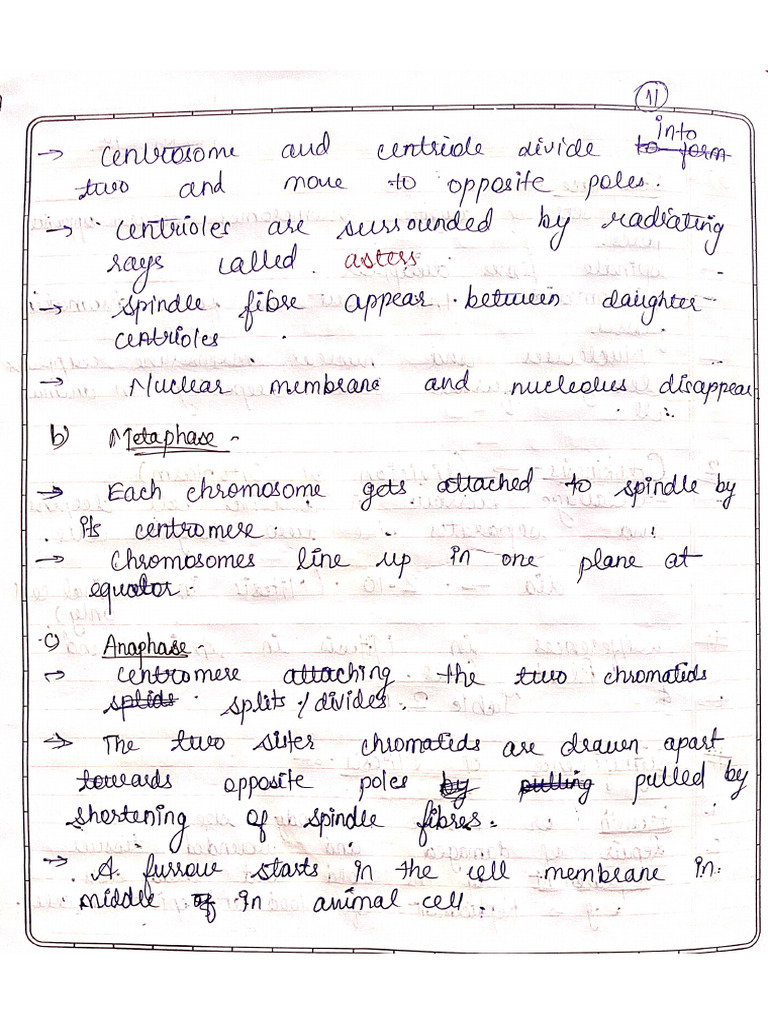 11
into
→ Centrosome and centriole divide to form
two and move to opposite poles.
→ Centrioles are surrounded by radiating
rays called asters
→ Spindle fibre appear between daughter
centrioles.
→ Nuclear membrane and nucleolus disappear
b) Metaphase -
→ Each chromosome gets attached to spindle by
its centromere.
→ Chromosomes line up in one plane at
equator.
c) Anaphase -
→ Centromere attaching the two chromatids
splids splits / divides.
→ The two sister chromatids are drawn apart
towards opposite poles by pulling pulled by
shortening of spindle fibres.
→ A furrow starts in the cell membrane in
middle of in animal cell.